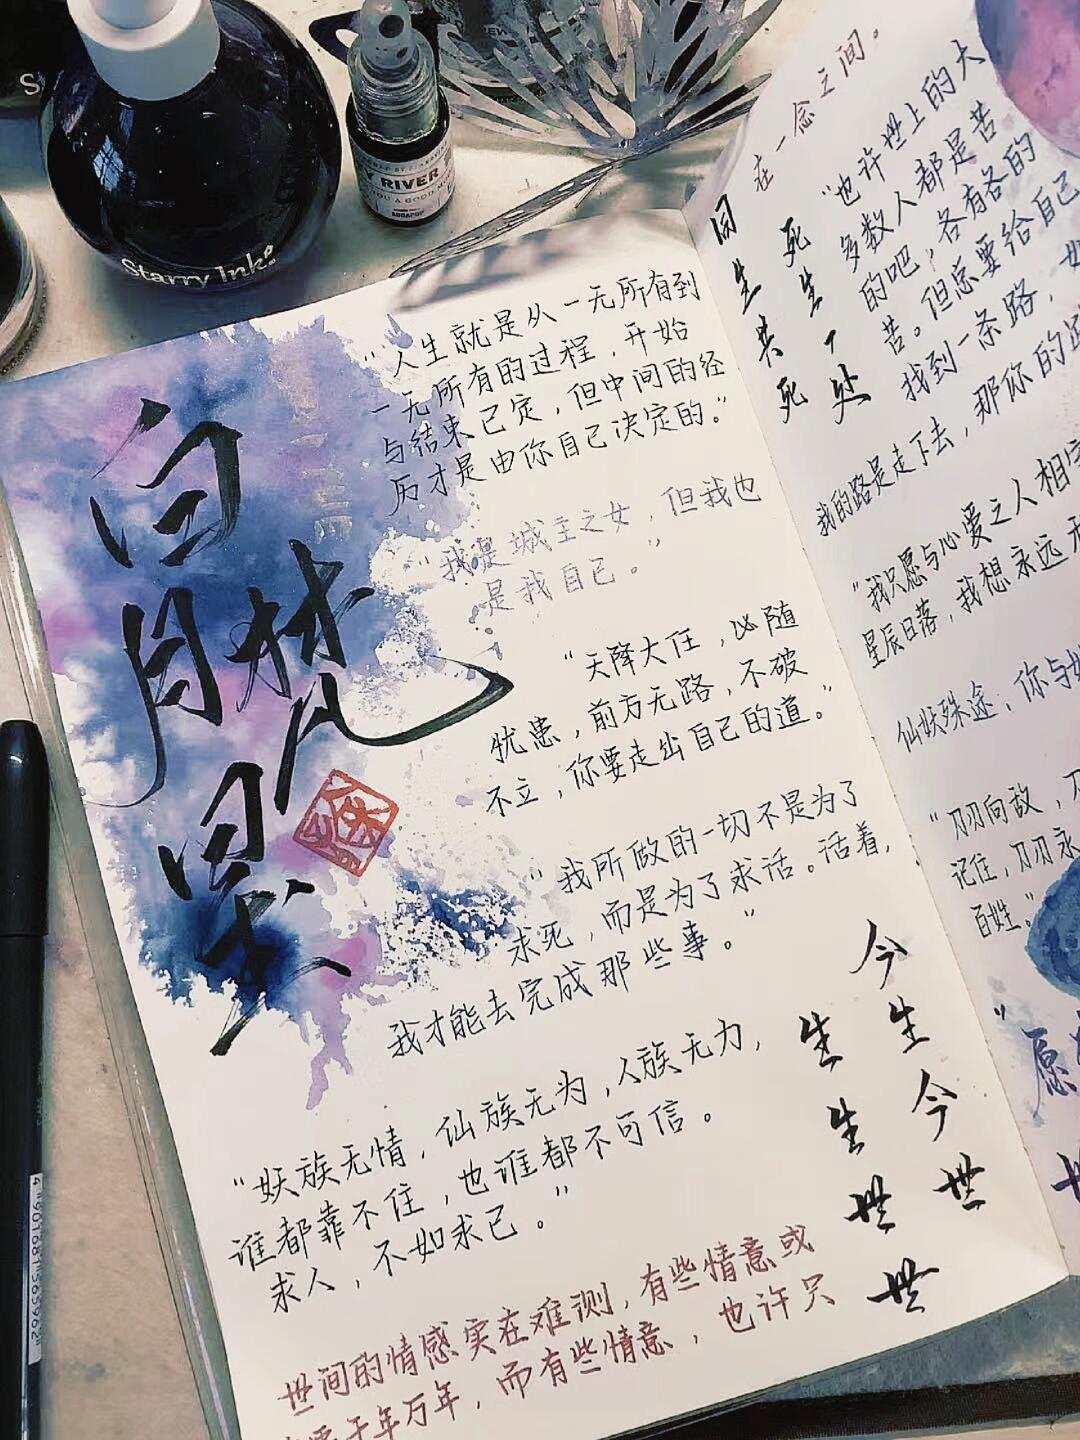 Starry Ink
RIVER
白月梵星
"人生就是从一无所有到
一无所有的过程，开始
与结束已定，但中间的经
历才是由你自己决定的。"
"我是城主之女，但我也
是我自己。"
"天降大任，必随
忧患，前方无路，不破
不立，你要走出自己的道。"
"我所做的一切不是为了
求死，而是为了求活。活着，
我才能去完成那些事。"
"妖族无情，仙族无为，人族无力，
谁都靠不住，也谁都不可信。
求人，不如求己。"
世间的情感实在难测，有些情意或
千年万年，而有些情意，也许只
在一念之间。
同生共死
死生一处
"也许世上的大
多数人都是苦
的吧，各有各的
苦。但总要给自己
找到一条路，
我的路是走下去，那你的
"我只愿与心爱之人相守
星辰日落，我想永远
仙妖殊途，你与
"刀刃向敌，
记住，刀刃永
百姓。"
今生今世
生生世世
"愿
4"901681"565962"